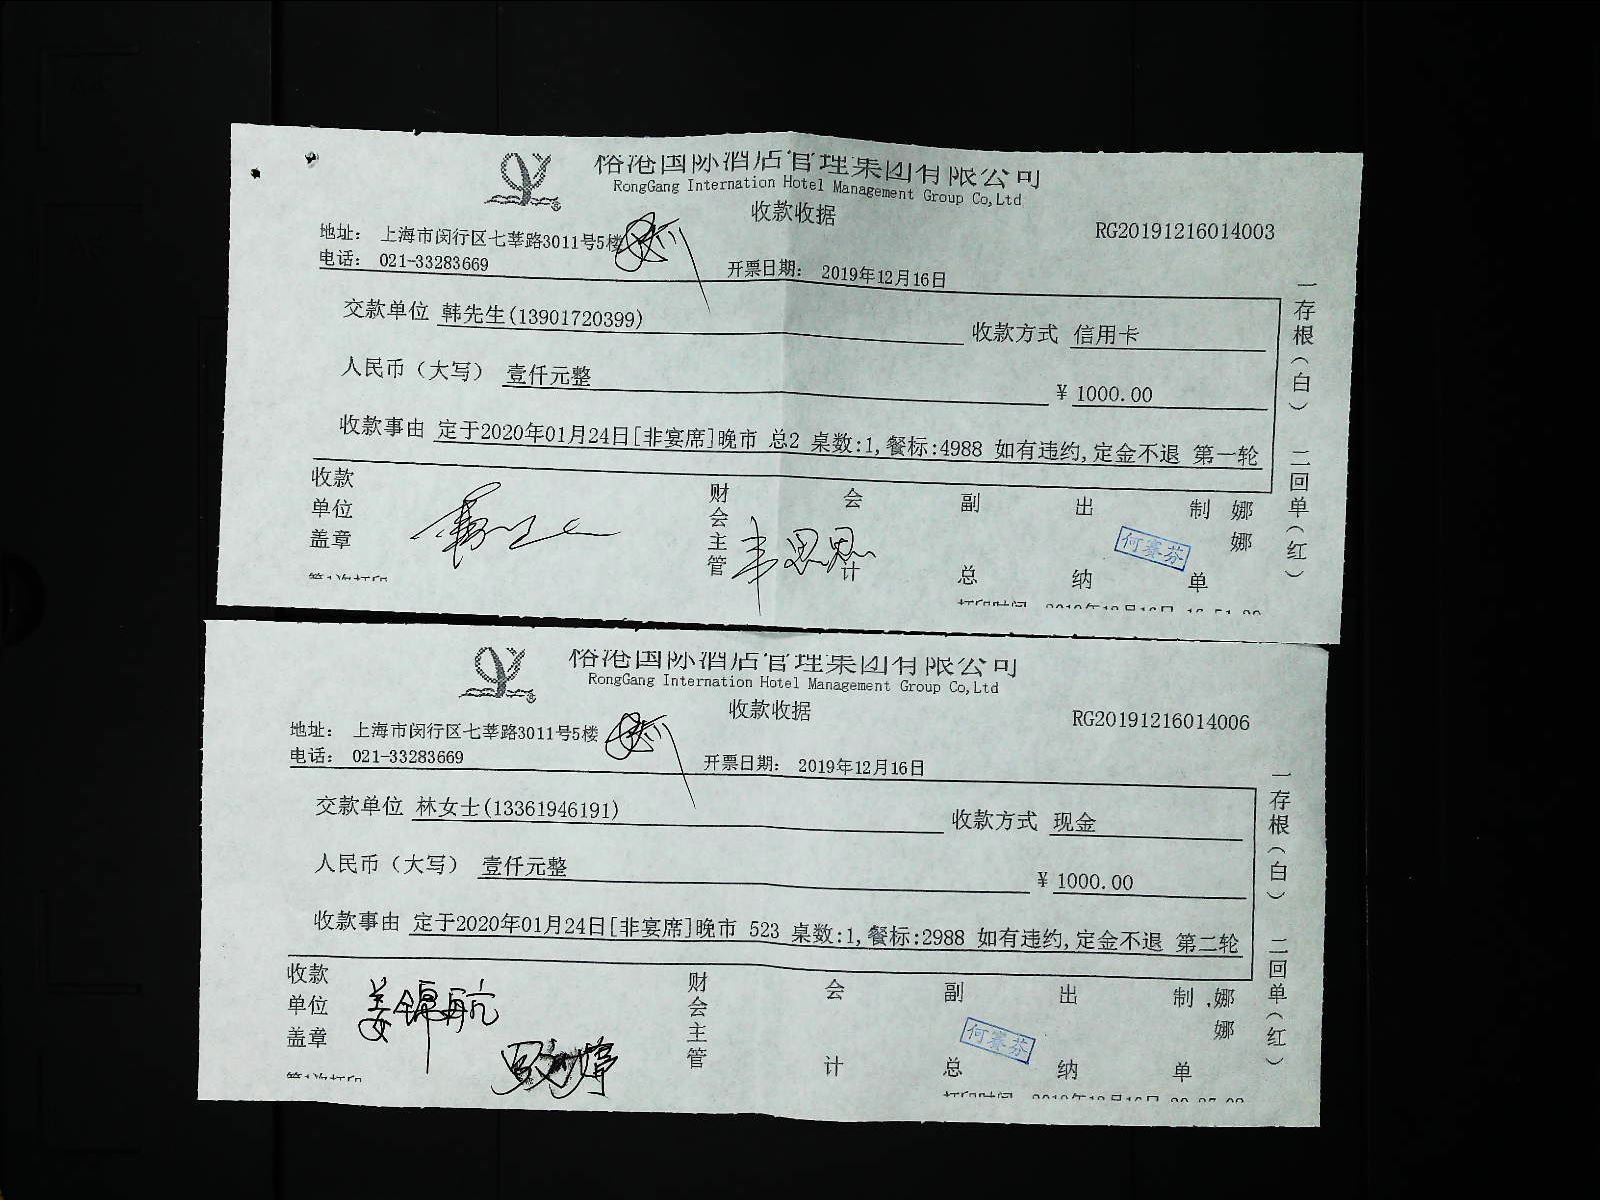 裕港国际酒店管理集团有限公司
RongGang Internation Hotel Management Group Co,Ltd
收款收据
RG20191216014003
地址: 上海市闵行区七莘路3011号5楼
电话: 021-33283669
开票日期: 2019年12月16日
交款单位 韩先生(13901720399)
收款方式 信用卡
人民币(大写) 壹仟元整
¥ 1000.00
收款事由 定于2020年01月24日[非宴席]晚市 总2 桌数:1,餐标:4988 如有违约,定金不退 第一轮
一存根(白) 二回单(红)
收款单位盖章
财会主管
韦思思
会计
副总
出纳
何赛芬
制单
娜娜
裕港国际酒店管理集团有限公司
RongGang Internation Hotel Management Group Co,Ltd
收款收据
RG20191216014006
地址: 上海市闵行区七莘路3011号5楼
电话: 021-33283669
开票日期: 2019年12月16日
交款单位 林女士(13361946191)
收款方式 现金
人民币(大写) 壹仟元整
¥ 1000.00
收款事由 定于2020年01月24日[非宴席]晚市 523 桌数:1,餐标:2988 如有违约,定金不退 第二轮
一存根(白) 二回单(红)
收款单位盖章
姜锦航
财会主管
会计
副总
何赛芬
出纳
制单
娜娜